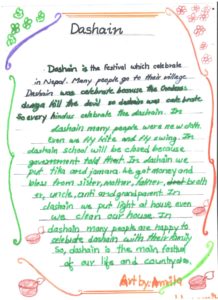 Dashain
Dashain is the festival which celebrate
in Nepal. Many people go to their village
Dashain was celebrate because the Goddess
durga kill the devil so dashain was celebrate
So every hindus celebrate the dashain. In
dashain many people wear new cloth.
Even we fly kite and fly swing. In
dashain school will be closed because
government told that. In dashain we
put tika and jamara. We got money and
bless from sister, mother, father, broth
er, uncle, anti and grandparent. In
dashain we put light at house even
we clean our house. In
dashain many people are happy to
celebrate dashain with their family
So, dashain is the main festival
of our life and country.
Art by: Armila